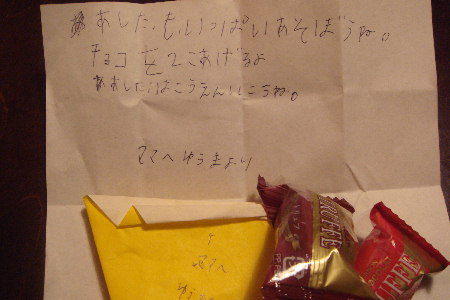 あしたも、いっぱいあそぼうね。
チョコを2こあげるよ
あしたはこうえんいこうね。
ママへゆうきより
ママへ